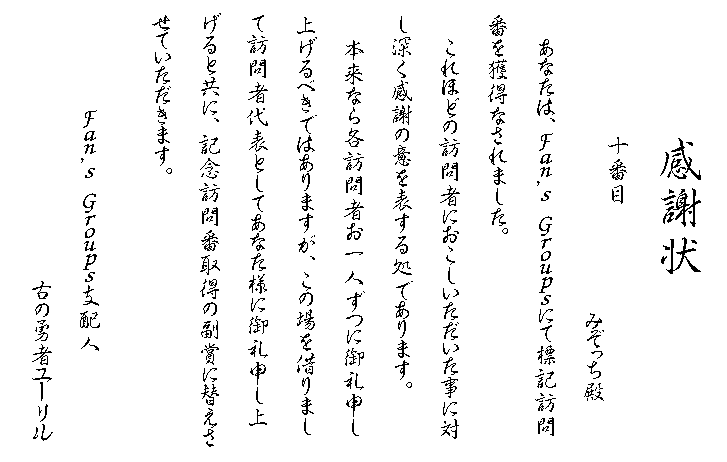 感謝状
十番目
みぞっち殿
あなたは、Fan's Groupsにて標記訪問
番を獲得なされました。
これほどの訪問者におこしいただいた事に対
し深く感謝の意を表する処であります。
本来なら各訪問者お一人ずつに御礼申し
上げるべきではありますが、この場を借りまし
て訪問者代表としてあなた様に御礼申し上
げると共に、記念訪問番取得の副賞に替えさ
せていただきます。
Fan's Groups支配人
古の勇者ユーリル